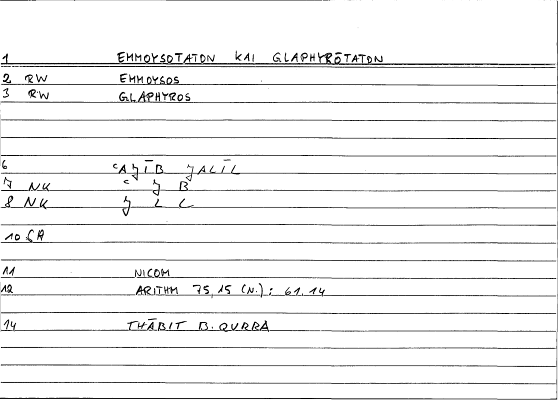 1 EMMOYSOTATON KAI GLAPHYRŌTATON
2 RW EMMOYSOS
3 RW GLAPHYROS
6 ʿAǧĪB ǧALĪL
7 NK ʿ ǧ B
8 NK ǧ L L
10 GA
11 NICOM
12 ARITHM 75,15 (N.): 61.14
14 THĀBIT B. QURRA